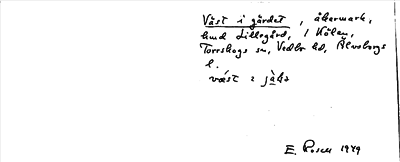 Väst i gärdet, åkermark,
hmd Lillegård, 1 Kölen,
Torrskogs sn, Vedbo hd, Älvsborgs
l.
väst i
E. Rosell 1949